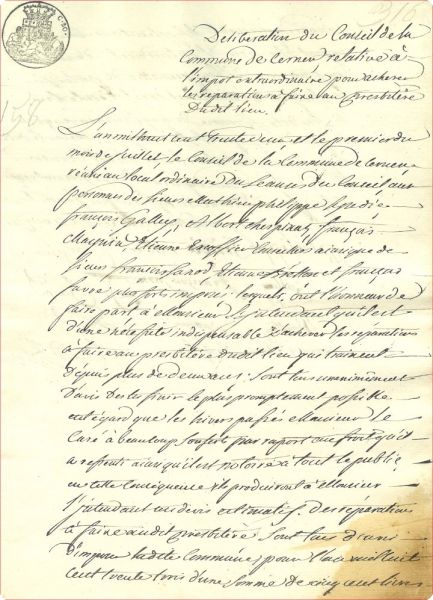 Déliberation du Conseil de la
Commune de Cerneu relative à
l'impot extraordinaire pour achever
les reparations à faire au presbitère
Dudit lieu.
L'an mil huit cent trente deux et le premier du
mois de juillet le Conseil de la Commune de
reuni au local ordinaire Des seances du Conseil aux
personnes des sieurs Mathieu philippe Syndic
françois Gallay, Albert françois
Etienne Conseillers ainsi que de
Sieurs francois et françois
favre plus forts imposés; lesquels, ont l'honneur de
faire part à Monsieur l'Intendant qu'il est
d'une nécessité indispensable d'achever les reparations
à faire au presbitère dudit lieu qui trainent
depuis plus de deux ans; sont tous unanimement
D'avis de les finir le plus promptement possible
eu égard que les hivers passés Monsieur le
Curé à beaucoup souffert par raport au froid qu'il
a ressenti ainsi qu'il est notoire à tout le public
en cette Consequence ils produiront à Monsieur
l'Intendant un devis estimatif. Des réparations
à faire audit presbitère Sont tous d'avis
D'imposer ladite Commune pour l'an mil huit
cent trente trois d'une somme de cinq cent livres